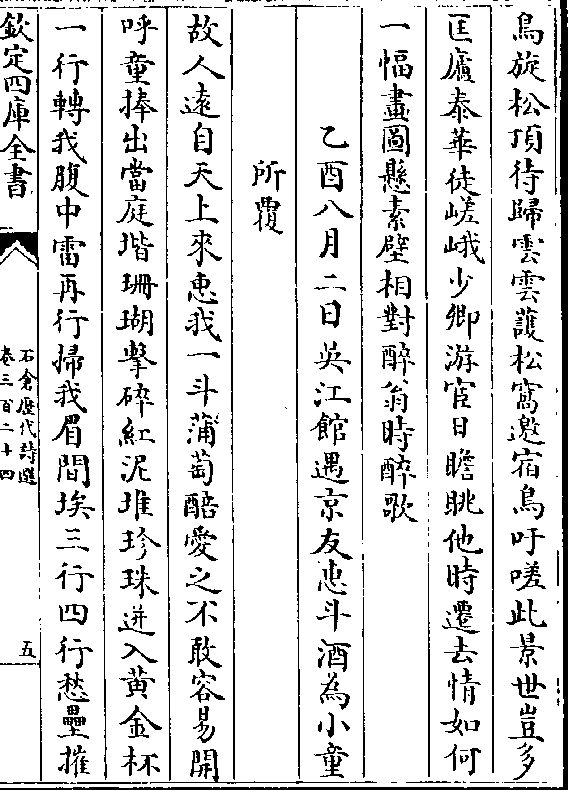 鳥旋松頂待歸雲雲護松窩邀宿鳥吁嗟此景世豈多
匡廬泰華徒嵯峨少卿游宦日瞻眺他時遷去情如何
一幅畫圖懸素壁相對醉翁時醉歌
乙酉八月二日吳江館遇京友惠斗酒為小童
所覆
故人遠自天上來惠我一斗蒲萄醅愛之不敢容易開
呼童捧出當庭堦珊瑚擊碎紅泥堆珍珠迸入黃金杯
一行轉我腹中雷再行掃我眉間埃三行四行愁壘摧
欽定四庫全書
石倉歷代詩選
卷三百二十四
五